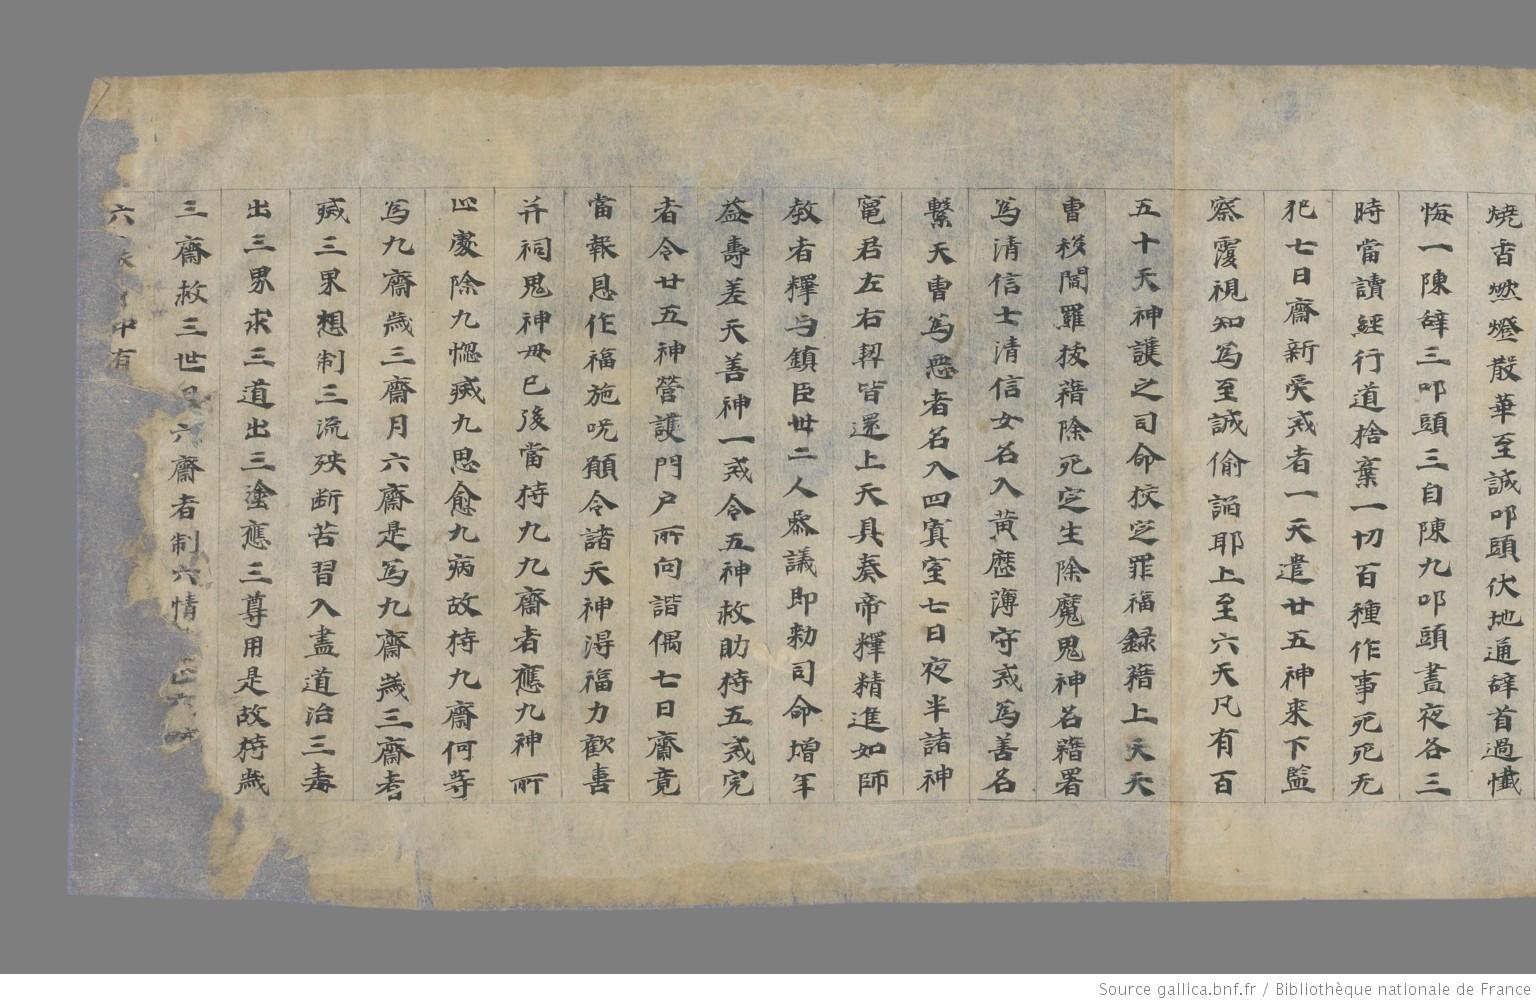 燒香燃燈散華至誠叩頭伏地通辤首過懺
悔一陳辤三叩頭三自陳九叩頭晝夜各三
時當讀經行道捨棄一切百種作事死死无
犯七日齋新受戒者一天遣廿五神來下監
察覆視知爲至誠偷諂耶上至六天凡有百
五十天神護之司命挍定罪福録藉上天天
曹移閻羅拔藉除死定生除魔鬼神名藉署
爲清信士清信女名入黄歷薄守戒爲善名
繫天曹爲惡者名入四寘室七日夜半諸神
竈君左右契皆還上天具奏帝釋精進如師
教者釋与鎮臣卅二人叅議即勑司命增年
益壽差天善神一戒令五神救助持五戒完
者令廿五神營護門户所向諧偶七日齋竟
當報恩作福施呪願令諸天神得福力歡喜
并祠鬼神毋已後當持九九齋者應九神所
四處除九惱滅九思愈九病故持九齋何等
爲九齋歲三齋月六齋是爲九齋歲三齋者
滅三界想制三流殃断苦習入盡道治三毒
出三界求三道出三塗應三尊用是故持歲
三齋救三世 六齋者制六情 六
六 中有
Source gallica.bnf.fr / Bibliothèque nationale de France